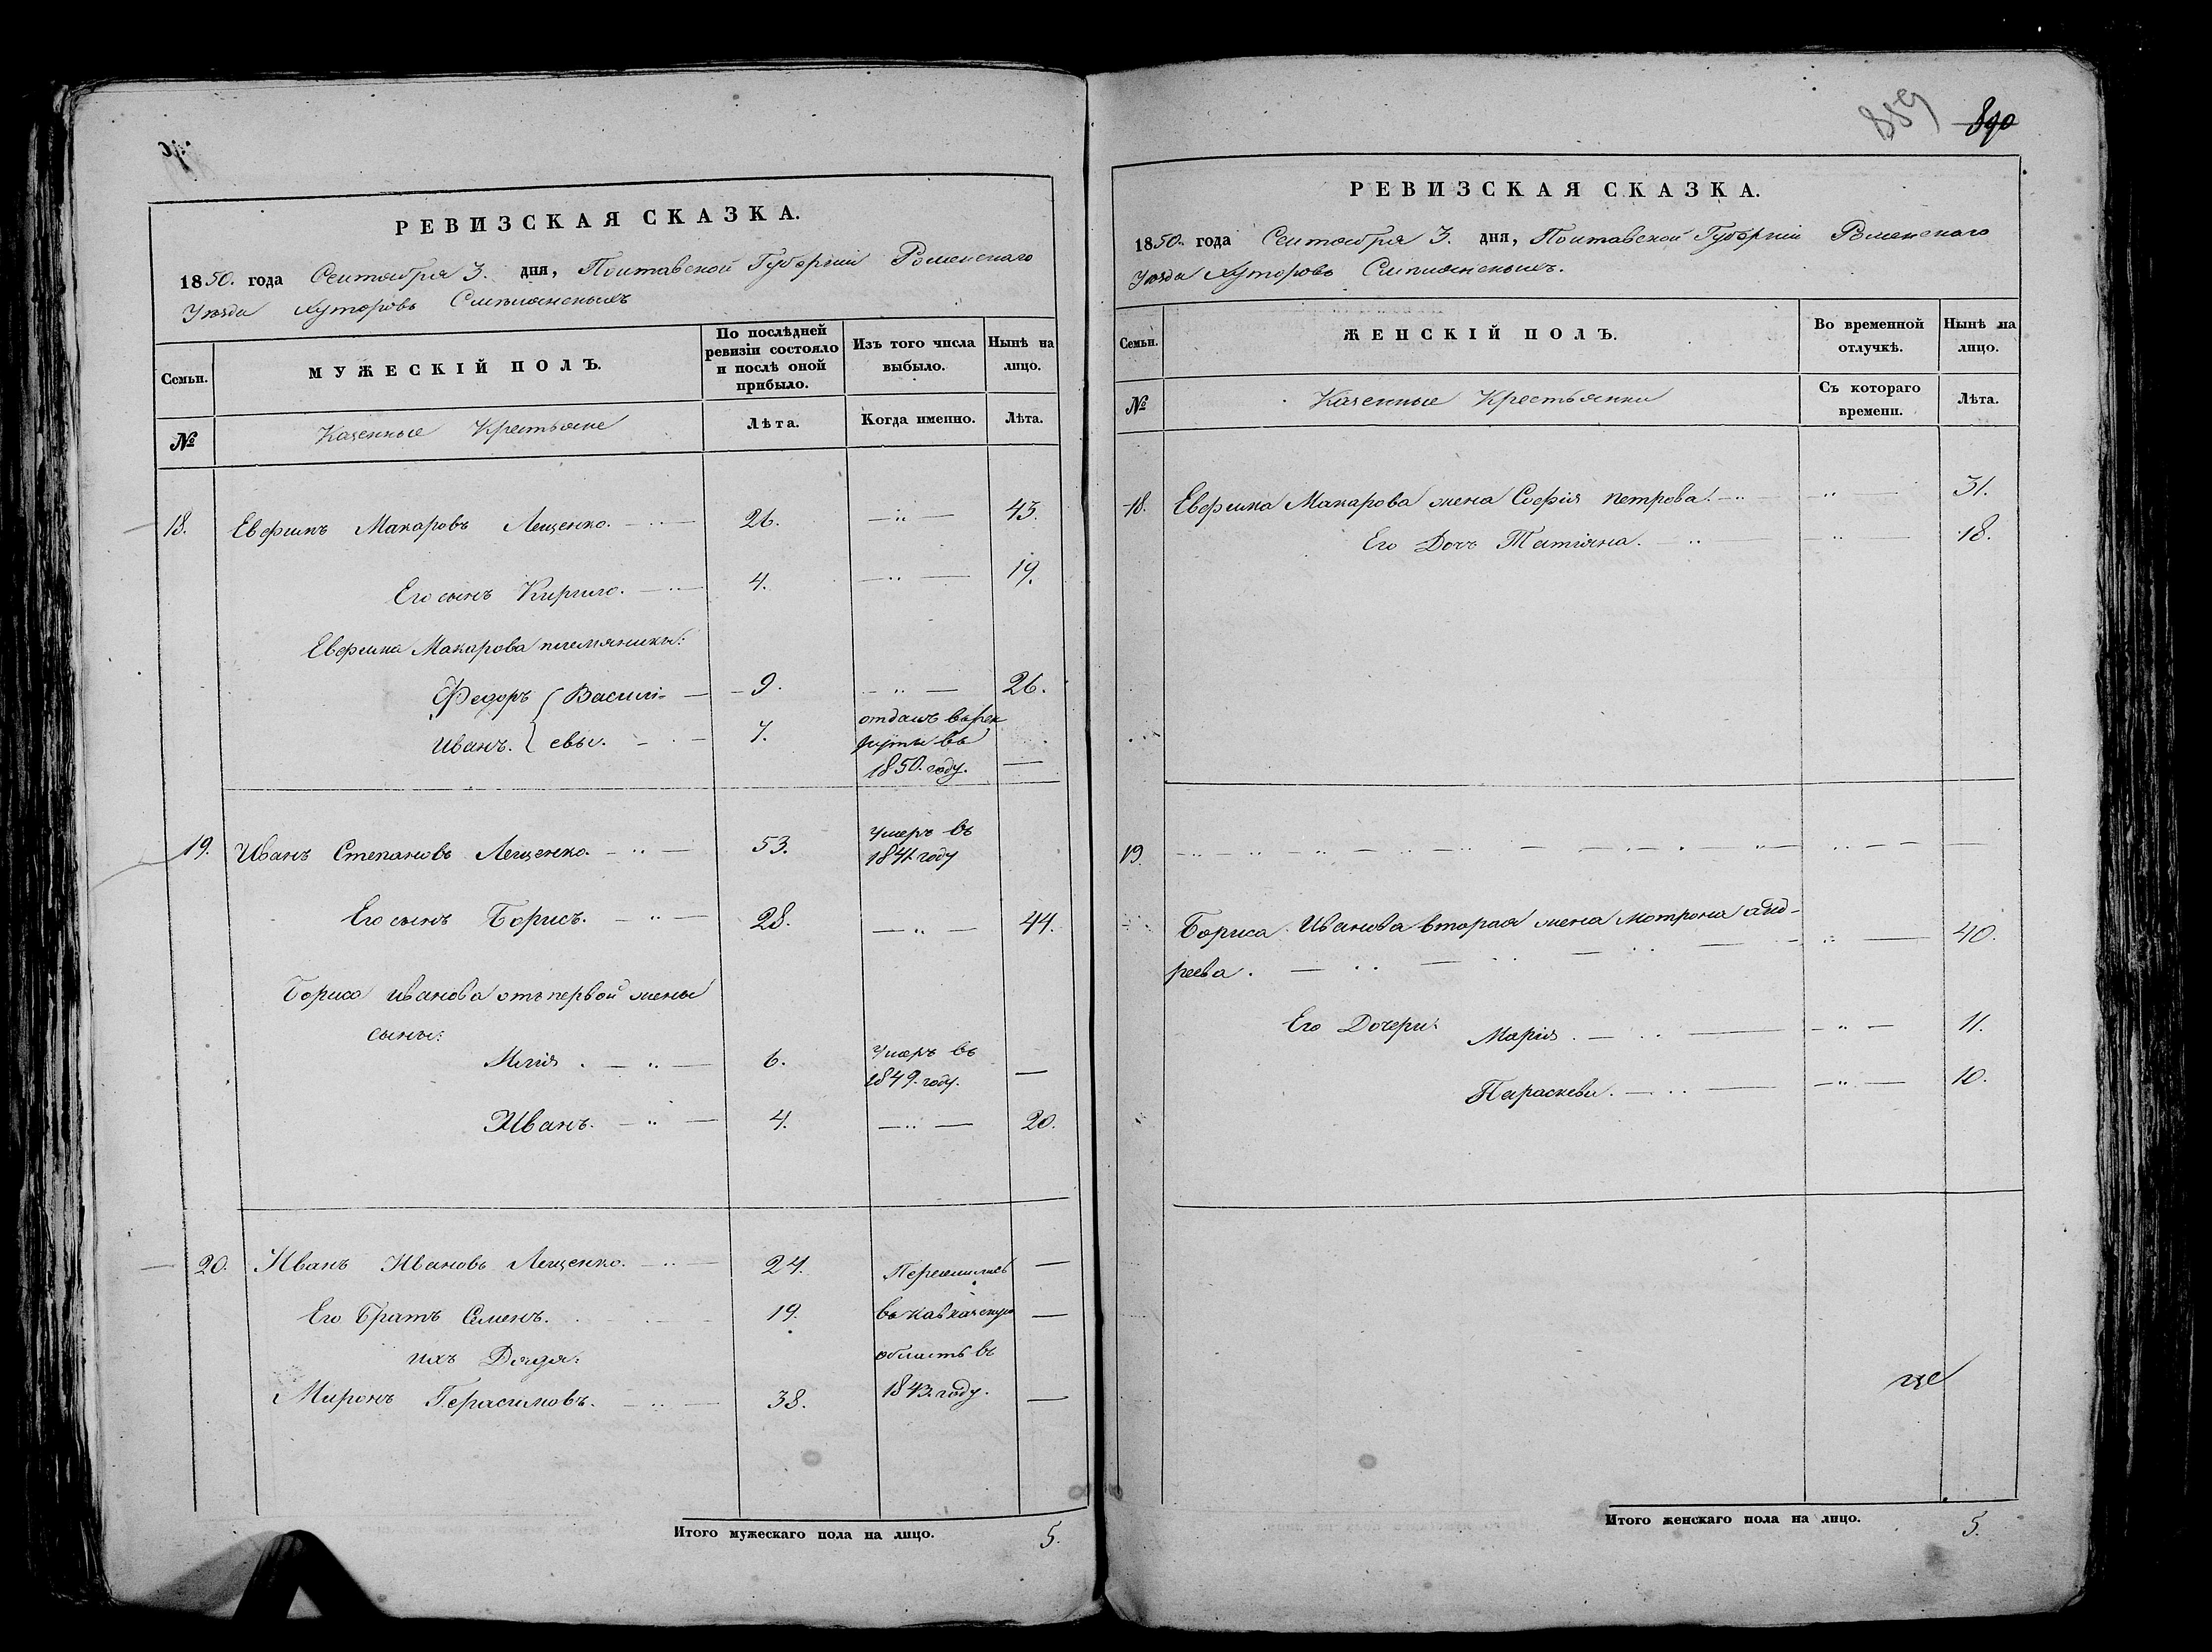 РЕВИЗСКАЯ СКАЗКА.
1850. года Сентября 3. дня, Полтавской Губерніи Роменскаго
Уѣзда Хуторовъ
Семьи.
МУЖЕСКІЙ ПОЛЪ.
По послѣдней
ревизіи состояло
и послѣ оной
прибыло.
Изъ того числа
выбыло.
Нынѣ на
лицо.
№
Казенные Крестьяне
Лѣта.
Когда именно.
Лѣта.
18. Евфимъ Макаровъ Лещенко. 26. 45.
Его сынъ Кирило. 4. 19.
Евфима Макарова племяники:
Федоръ { Василі- 9. 26.
Иванъ. { евы. 7. отданъ въ рек
руты въ
1850. году.
19. Иванъ Степановъ Лещенко. 53. Умеръ въ
1841. году
Его сынъ Борисъ. 28. 44.
Бориса Иванова отъ первой жены
сыны:
Илія. 6. Умеръ въ
1849. году.
Иванъ. 4. 20.
20. Иванъ Ивановъ Лещенко. 24. Переселились
Его Братъ Семенъ. 19. въ кавказскую
ихъ Дядя: область въ
Миронъ Герасимовъ. 38. 1843. году.
Итого мужескаго пола на лицо. 5.
889 890
РЕВИЗСКАЯ СКАЗКА.
1850. года Сентября 3. дня, Полтавской Губерніи Роменскаго
Уѣзда Хуторовъ
Семьи.
ЖЕНСКІЙ ПОЛЪ.
Во временной
отлучкѣ.
Нынѣ на
лицо.
№
Казенные Крестьянки
Съ котораго
времени.
Лѣта.
18. Евфима Макарова жена Софія Петрова. 31.
Его Дочь Татіяна. 18.
19.
Бориса Иванова вторая жена Мотрона Анд-
реева. 40.
Его Дочери: Марія. 11.
Параскева. 10.
Итого женскаго пола на лицо. 5.